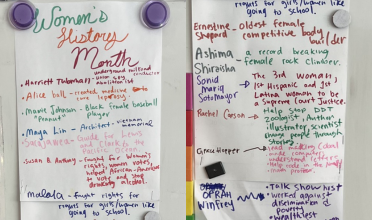 Women's
History
Month
Harriett Tubman -
underground railroad
conductor
Alice Ball - created medicine
Mamie Johnson - Black female baseball
"Peanut" player
Maya Lin - Architect - Vietnam
memorial
Sacajawea - Guide for Lewis
and Clark to the
Pacific Ocean
Susan B Anthony - fought for Women's
rights, women votes,
helped African-American
drinking alcohol.
malala - fought rights for
rights for girls/women like
going to school.
rights for girls/women like
going to school.
Ernestine - oldest female
Shepard competitive body
builder
Ashima - a record breaking
Shiraishi female rock climber.
Sonia The 3rd woman,
Maria 1st Hispanic and 1st
Sotomayor Latina woman to be
a Supreme Court Justice.
Rachel Carson - Help stop DDT
zoologist, Author
illustrator scientist
change people through
stories
Grace Hopper -
made computers
understand letters
OPRAH - Talk show host
Winfrey worked against
discrimination &
poverty